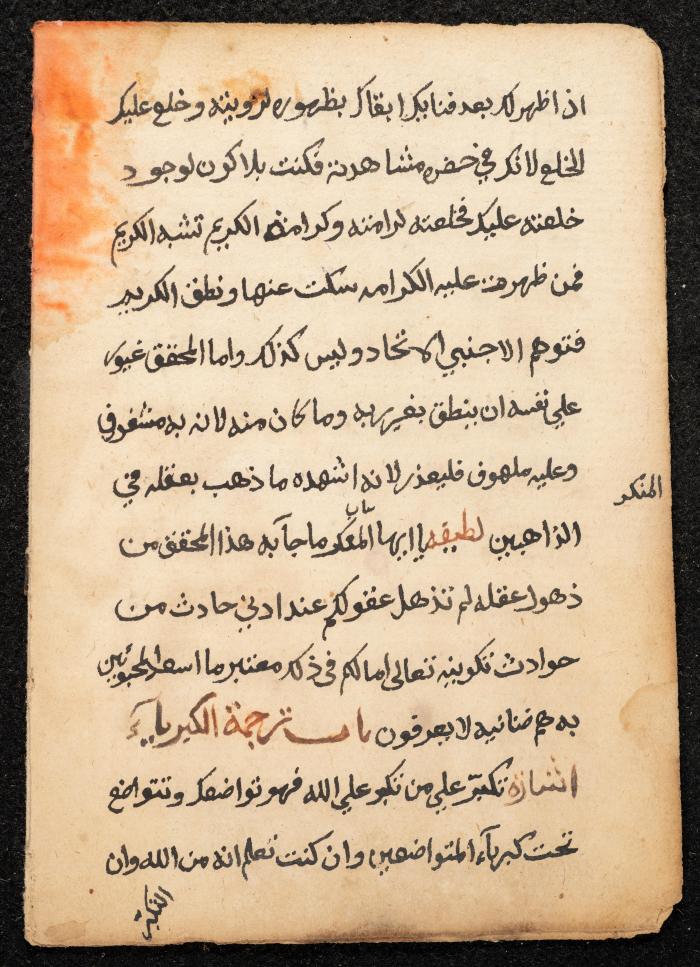 اذ اظهر لك بعد فنايك ابقاك بظهوره لرويته وخلع عليك
الخلع لانك في حضره مشاهدته فكنت بلا كون لوجود
خلعته عليك فخلعته كرامته وكرامة الكريم تشبه الكريم
فمن ظهرت عليه الكرامه سكت عنها ونطق الكريم
فتوهم الاجنبي الاتحاد وليس كذلك واما المحقق غيور
علي نفسه ان ينطق بغير ربه وما كان منه لانه به مشغوف
وعليه ملهوف فليعذر لانه اشهده ما ذهب بعقله في
المنكر
الذاهبين لطيفه يا ايها ما جآ به هذا المحقق من
ذهول عقله لم تذهل عقولكم عند ادني حادث من
حوادث تكوينه تعالى امالكم في ذلك معتبر ما اسعد المحبوبين
به هم ضنائنه لا يعرفون باب ترجمة الكبريآء
اشارة تكبّر علي من تكبر علي الله فهو تواضعك وتتواضع
تحت كبريآء المتواضعين وان كنت تعلم انه من الله وان
التكبّر